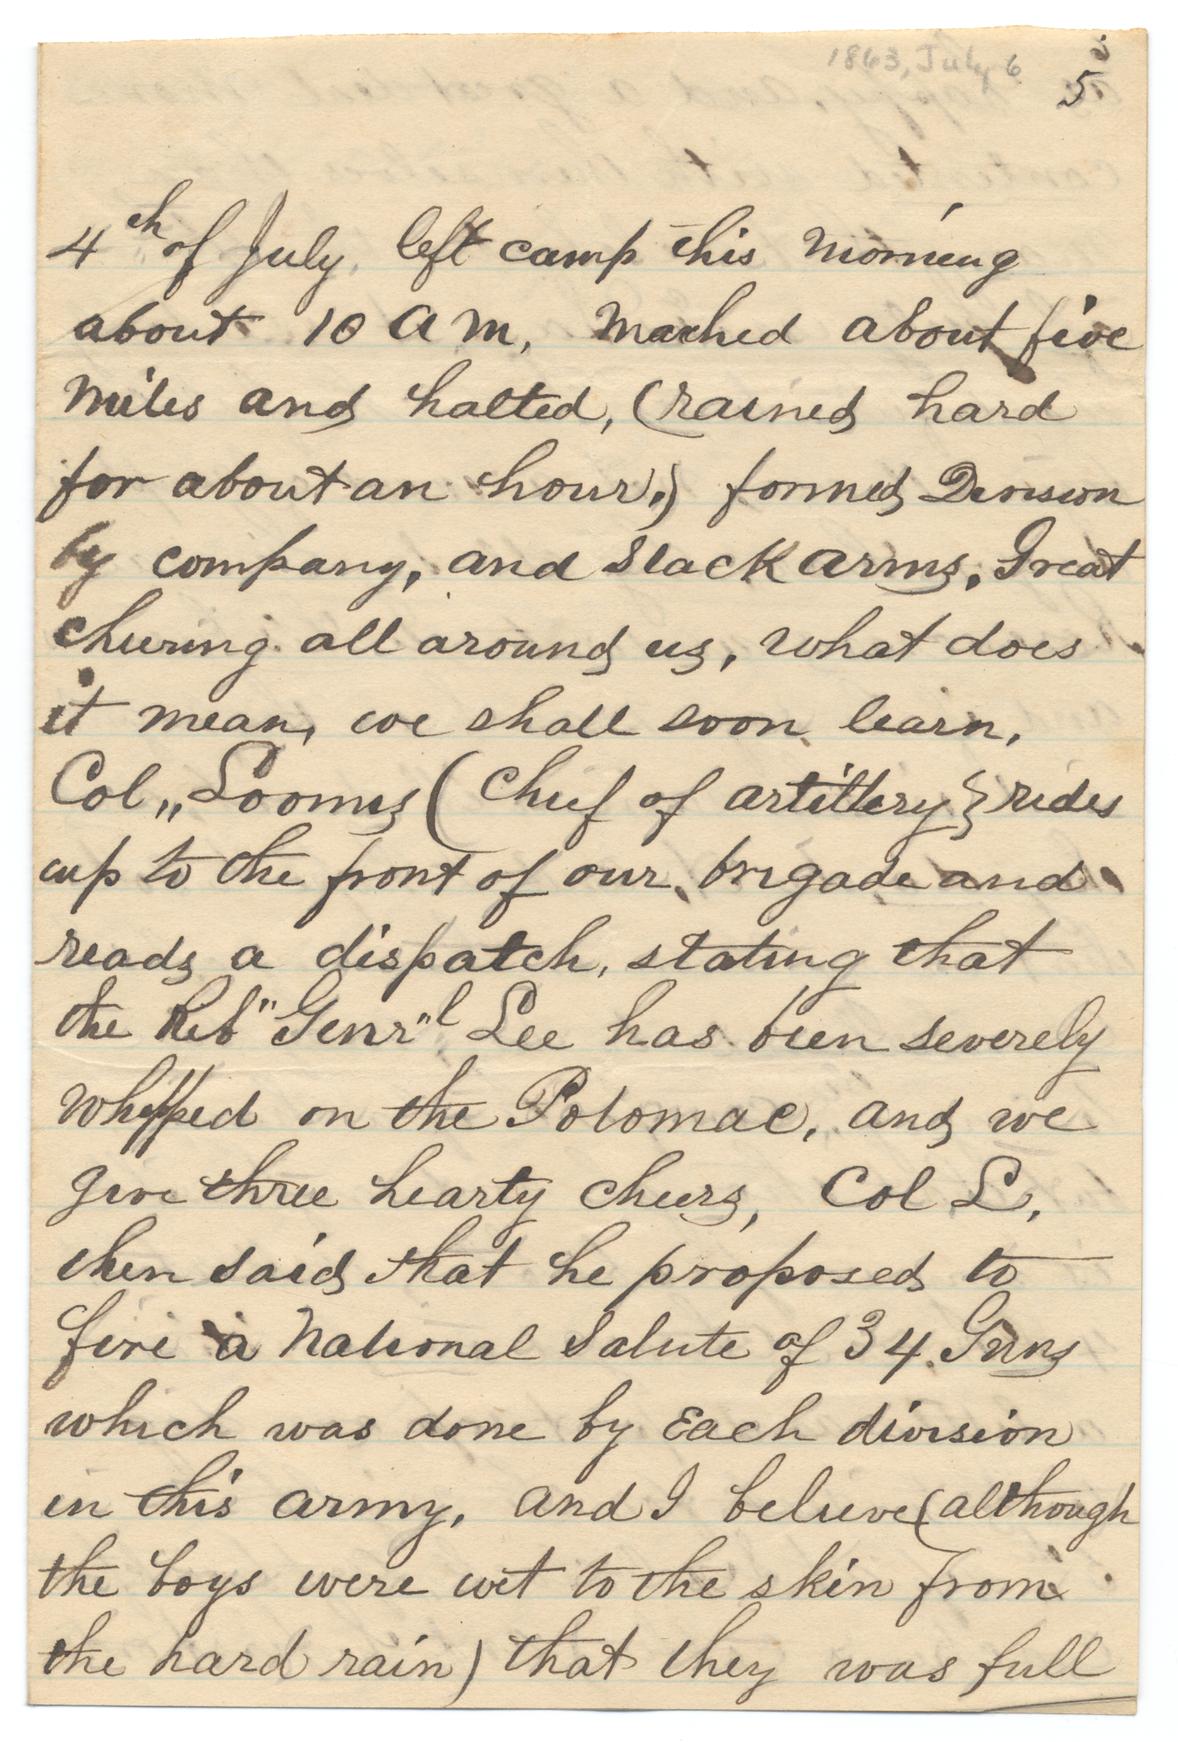 1863, July 6
5
4th of July, left camp this morning
about 10 A M, Mached about five
miles and halted, (rained hard
for about an hour.) formed Division
by company, and Stack arms. Great
cheering all around us, what does
it mean, we shall soon learn,
Col,, Loomis (Chief of artillery} rides
up to the front of our brigade and
reads a dispatch, stating that
the Reb" Genr"l Lee has been severely
whipped on the Potomac, and we
give three hearty cheers, Col L,
then said that he proposed to
fire a National Salute of 34 Guns
which was done by Each division
in this army, and I believe (although
the boys were wet to the skin from
the hard rain) that they was full